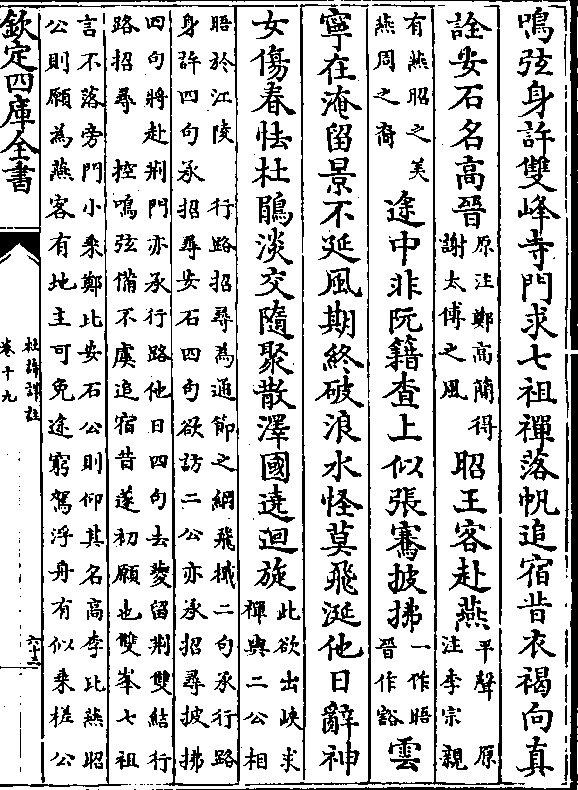 鳴弦身許雙峰寺門求七祖禪落帆追宿昔衣褐向真
詮安石名高晉原注鄭高簡得謝太傅之風昭王客赴燕平聲原注李宗親
有燕昭之美燕周之裔途中非阮籍查上似張騫披拂一作晤晉作豁雲
寧在淹留景不延風期終破浪水怪莫飛涎他日辭神
女傷春怯杜鵑淡交隨聚散澤國遶迴旋此欲出峽求禪與二公相
晤於江陵行路招尋為通節之綱飛檝二句承行路
身許四句承招尋安石四句欲訪二公亦承招尋披拂
四句將赴荆門亦承行路他日四句去䕫留荆雙結行
路招尋控鳴弦備不虞追宿昔遂初願也雙峯七祖
言不落旁門小乘鄭比安石公則仰其名高李比燕昭
公則願為燕客有地主可免途窮駕浮舟有似乘槎公
欽定四庫全書
杜詩詳註
卷十九
六十三